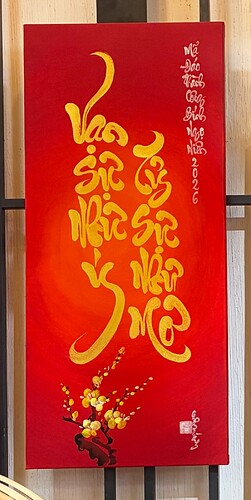 Vạn Sự Như Ý
Tỷ Sự Như Mơ
Mã Đáo Thành Công Bính Ngọ Niên 2026